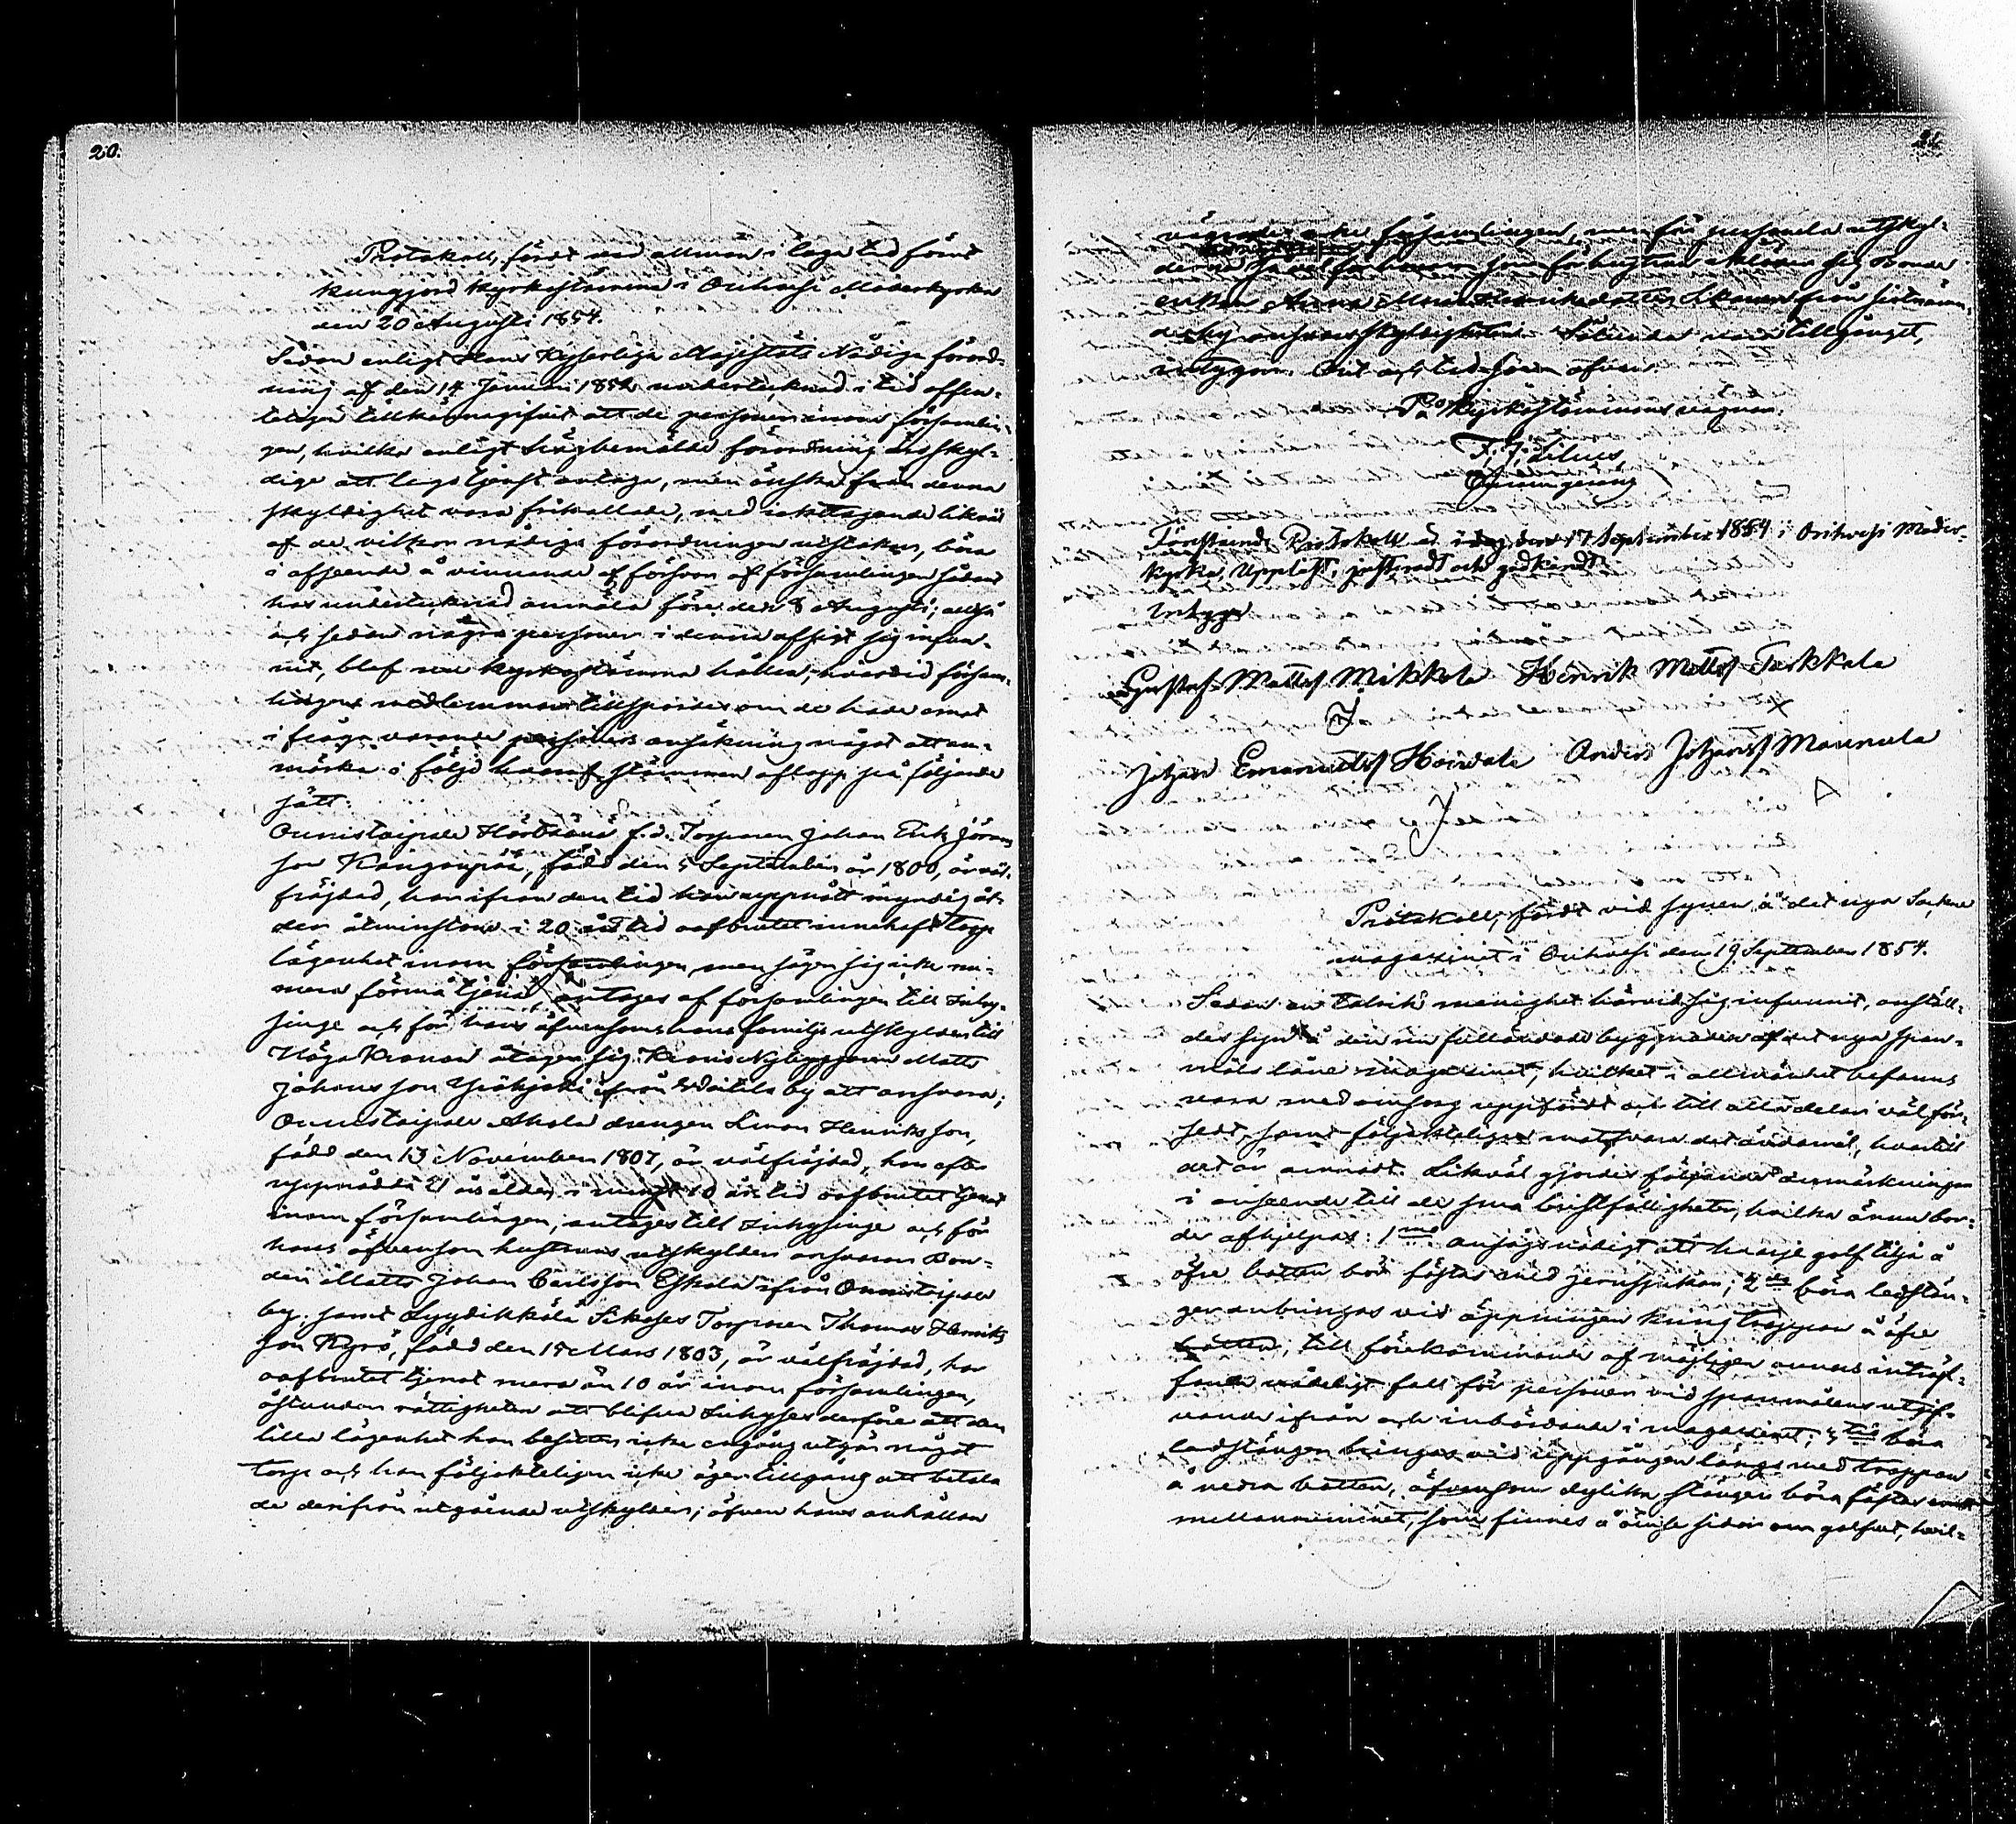 20.
Protokoll, fördt vid allmän i laga tid förut
kungjord Kyrkostämma i Orihvesi Moderkyrka
den 20 Augusti 1854.
Sedan enligt Hans Kejserliga Majestäts Nådiga förord-
ning af den 14 Januari 185 undertecknad i tid offen-
teligen tillkännagifvit att de personer inom församlin-
gen, hvilka enligt högbemälde förordning äro skyl-
dige att lega tjenst antaga, men önska från denna
skyldighet vara frikallade, med iakttagande likväl
af de vilkor nådiga förordningen utstakar, böra
i afseende å vinnande af försvar af församlingen sådant
hos undertecknad anmäla före den 8 Augusti; altså
och sedan några personer i denna afsigt sig infun-
nit, blef nu Kyrkostämma hållen, hvarvid försam-
lingens medlemmar tillspordes om de hade emot
i fråga varande personers ansökning något att an-
märka i följd hvaraf stämman aflopp på följande
sätt:
Onnistaipale f.d. Torparen Johan Erik Jörans
son Kangaspää, född den 5 September år 1800, är väl-
fräjdad, har ifrån den tid han uppnått myndig ål-
der åtminstone i 20 års tid oafbrutet innehaft Torp
lägenhet inom församlingen, men säger sig icke nu-
mera förmå tjena, antages af församlingen till Inhy-
singe och för hans äfvensom hans familjs utskylder till
Höga Kronan åtager sig Krono Nybyggaren Matts
Johansson Yräkjoki ifrån by att ansvara;
Onnistaipale Skola drengen Simon Henriksson,
född den 13 November 1807, är välfräjdad, har efter
uppnådde 21 års ålder i minst 10 års tid oafbrutet tjenat
inom församlingen, antages till Inhysinge och för
hans äfvensom hustruns utskylder ansvarar Bon-
den Matts Johan Carlsson Eskola ifrån Onnistaipale
by; samt Lyydikkälä Torparen Thomas Henriks
son Kyrö, född den 18 Mars 1803, är välfräjdad, har
oafbrutet tjenat mera än 10 år inom församlingen,
åstundar rättigheten att blifva Inhyses derföre att den
lilla lägenhet han besitter icke engång utgör något
Torp och han följakteligen icke äger tillgång att betala
de derifrån utgående utskylder; äfven hans anhållan
21.
vägrade icke församlingen, men för personela utskyl-
derne
enkan Anna Maria Henriksdotter från sistnämn-
de by ansvarsskyldigheten. Sålunda vara tillgånget,
intygar. Ort och tid som ofvan.
På Kyrkostämmans vägnar.
F. J. Lilius
Förestående Protokoll är i dag den 17 September 1854 i Orihvesi Moder-
kyrka uppläst, justeradt och godkändt.
Intyga
Gustaf Mattss Mikkola Henrik Mattss Terkkala
Johan Emanuelss Anders Johanss Mannula
Protokoll, fördt vid synen å det nya Sockne
magasinet i Orihvesi den 19 September 1854.
Sedan en talrik menighet härvid sig infunnit, anstäl-
des syn å den nu fulländade byggnaden af det nya span-
måls låne magasinet, hvilket i allmänhet befanns
vara med omsorg uppfördt och till alla delar väl för-
sedt, samt följakteligen motsvara det ändamål, hvartill
det är ämnadt. Likväl gjordes följande anmärkningar
i anseende till de små bristfälligheter, hvilka ännu bor-
de afhjelpas: 1mo ansågs nödigt att hvarje golf tilja å
öfre botten bör fästas med jernspikar; 2do böra ledstän-
ger anbringas vid öppningen kring trappan å öfre
botten, till förekommande af möjligen annars inträf-
fande vådeligt fall för personer vid spannmålens utgif-
vande ifrån och inbärande i magasinet; 3tio böra
ledstänger bringas vid uppgången längs med trappan
å nedra botten, äfvensom dylika stänger böra fästas
mellanrummet, som finnes å ömse sidor om golfvet, hvil-